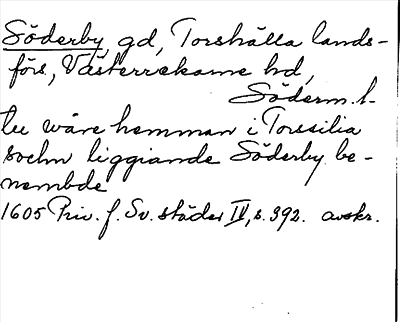 Söderby, gd, Torshälla lands-
förs., Västerrekarne hd,
Söderm. l.
tu wåre hemman i Torssilia
sochn liggiande Söderby be-
nembde
1605 Priv. f. Sv. städer IV, s. 392. avskr.